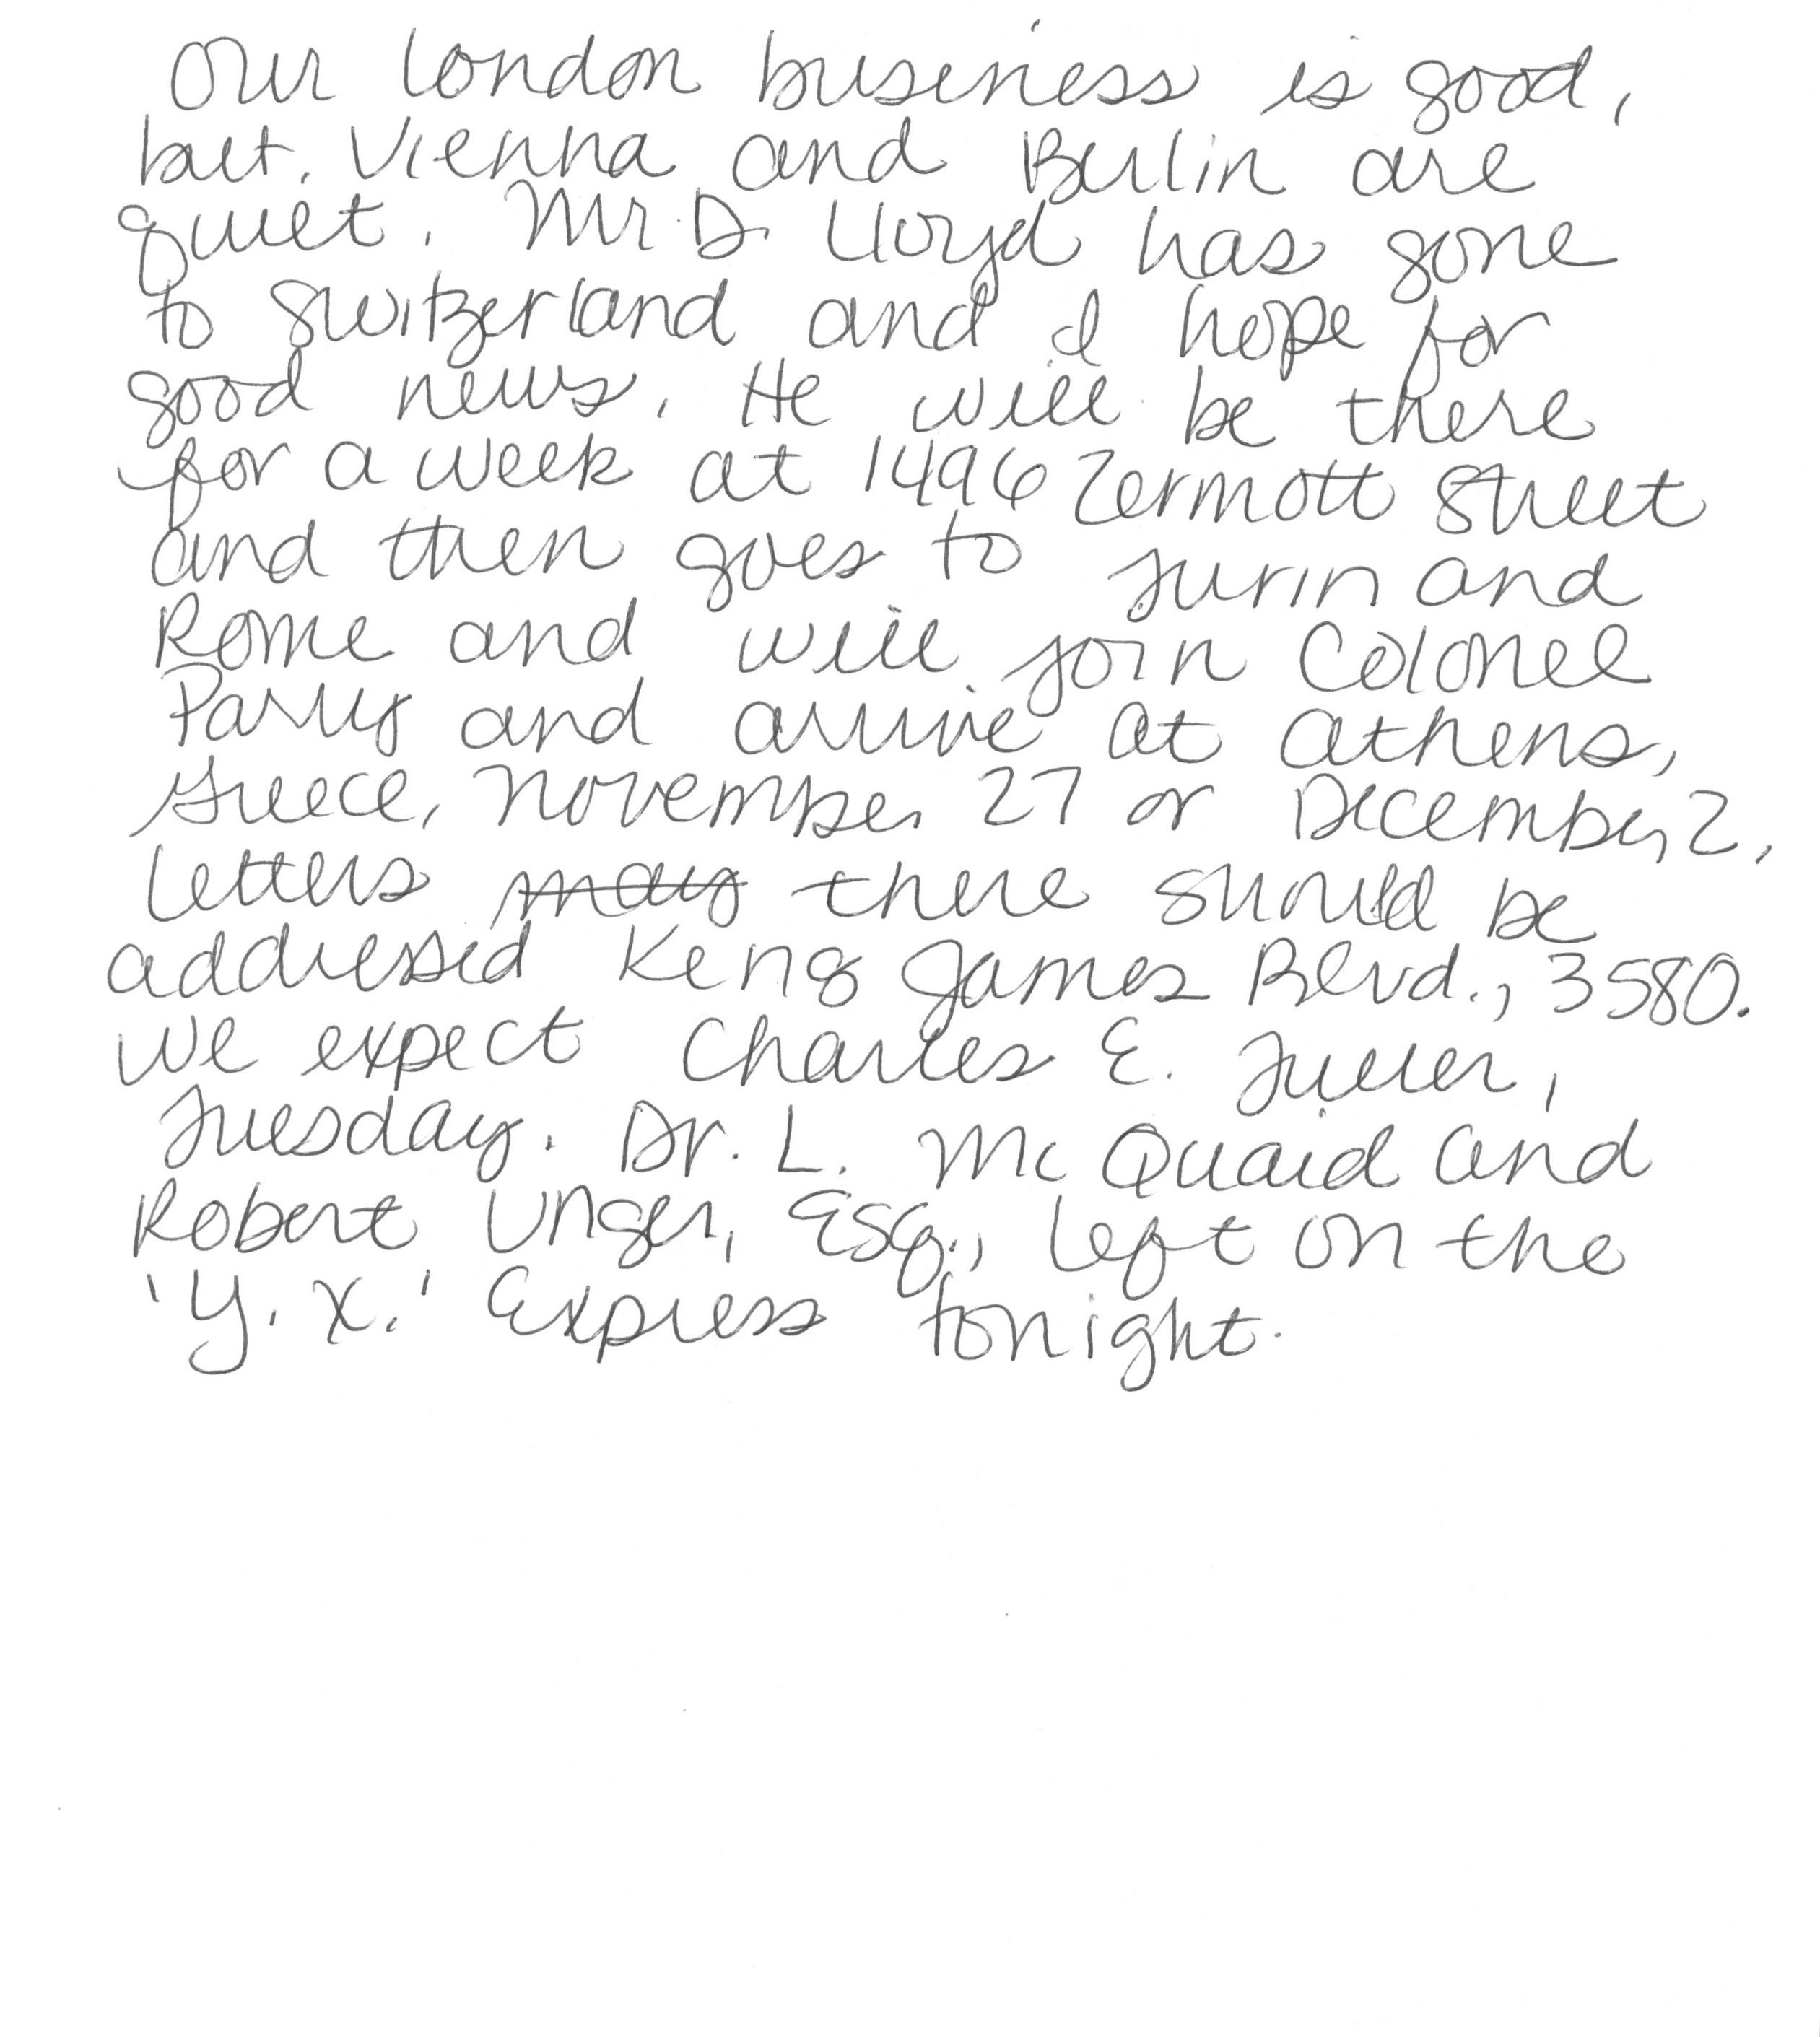 Our London business is good,
but Vienna and Berlin are
quiet. Mr. D. Lloyd has gone
to Switzerland and I hope for
good news. He will be there
for a week at 1496 Zermott Street
and then goes to Turin and
Rome and will join Colonel
Parry and arrive at Athens,
Greece, November 27 or December 2.
Letters may there should be
addressed King James Blvd., 3580.
We expect Charles E. Fuller,
Tuesday. Dr. L. Mc Quaid and
Robert Unger, Esq., left on the
'Y. X.' Express tonight.